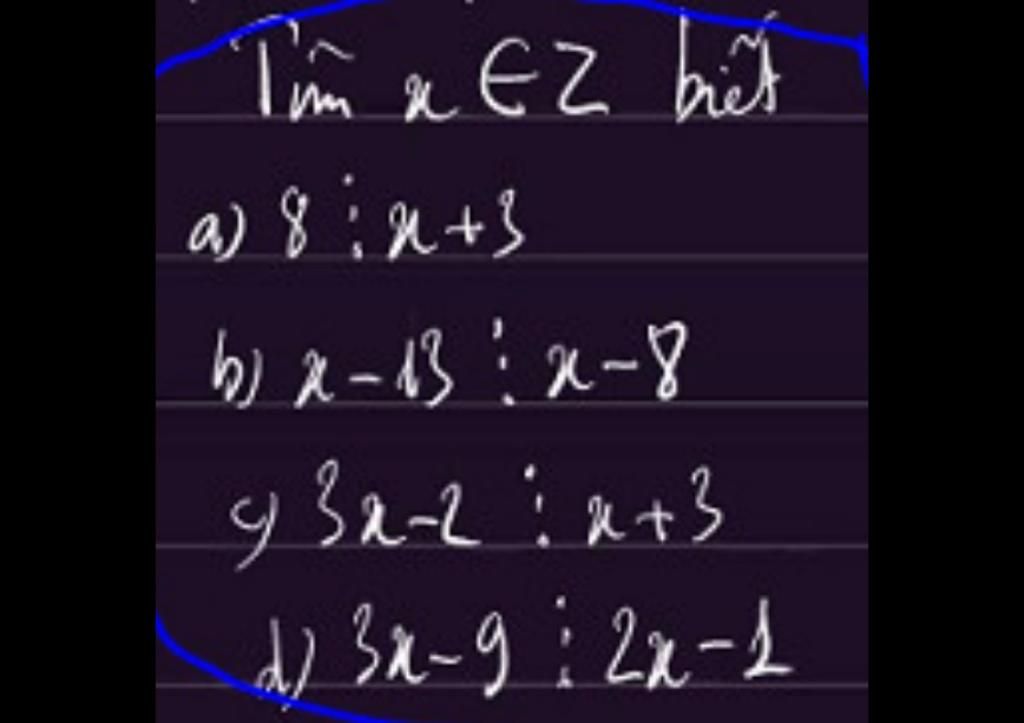 Tìm x ∈ Z biết
a) 8 ⋮ x+3
b) x-13 ⋮ x-8
c) 3x-2 ⋮ x+3
d) 3x-9 ⋮ 2x-1